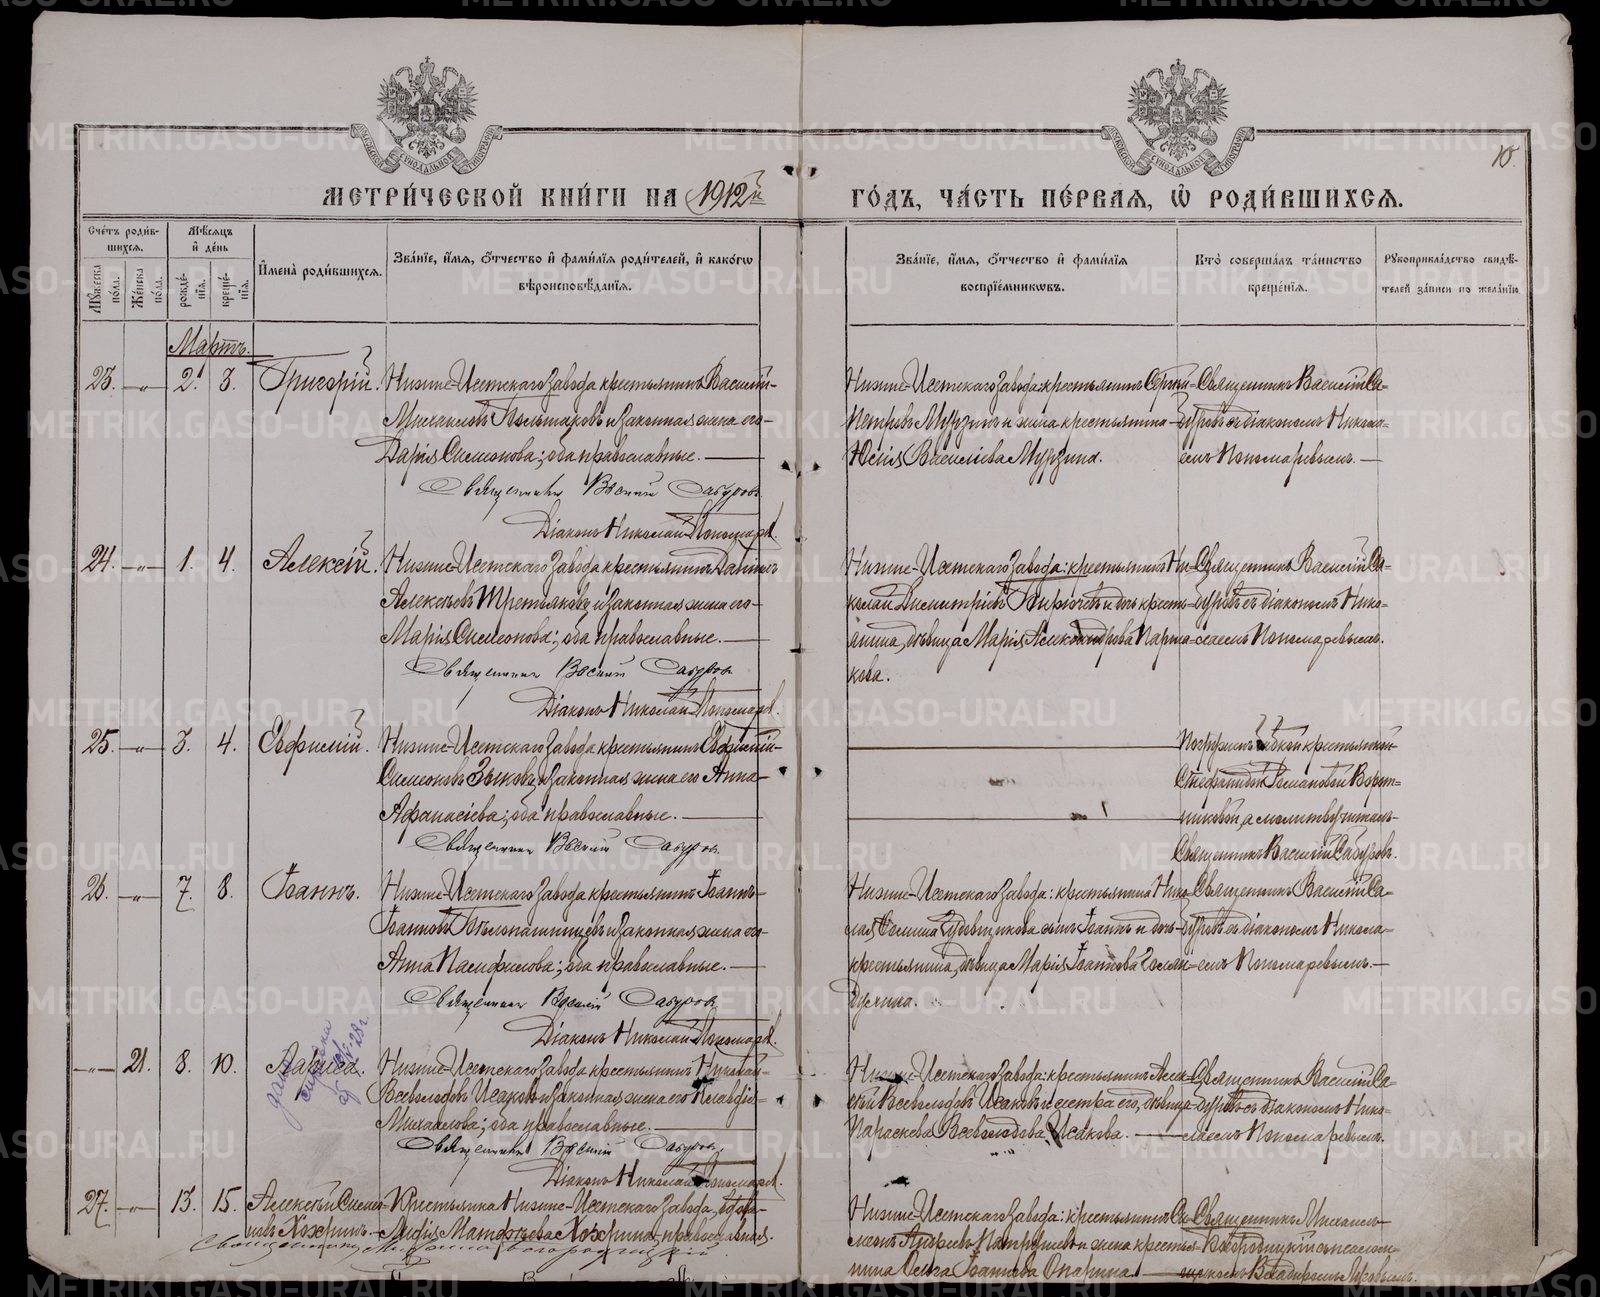 МЕТРИ́ЧЕСКОЙ КНИ́ГИ НА 1912й ГО́ДЪ, ЧА́СТЬ ПЕ́РВАЯ, Ѡ РОДИ́ВШИХСЯ.
10.
Сче́тъ роди́вшихся.
Му́жеска по́ла.
Же́нска по́ла.
Мѣ́сяцъ и де́нь
рожде́нія.
креще́нія.
И҆мена̀ роди́вшихся.
Зва́ніе, и҆́мя, ѻ҆́тчество и҆ фами́лія роди́телей, и҆ како́гѡ вѣроисповѣ́данія.
Зва́ніе, и҆́мя, ѻ҆́тчество и҆ фами́лія воспріе́мникѡвъ.
Кто̀ соверша́лъ та́инство креще́нія.
Рꙋкоприкла́дство свидѣ́телей за́писи по жела́нію.
Мартъ.
23. —„— 2. 3. Григорій.
Нижне-Исетскаго завода крестьянинъ Василій
Михаиловъ и законная жена его
Дарія Симеонова; оба православные.
Священникъ Василий Сабуровъ
Діаконъ Николай Пономарев
Нижне-Исетскаго завода: крестьянинъ Сергій
Петровъ Мурзинъ и жена крестьянина
Юлія Василіева Мурзина.
Священникъ Василій Са-
буровъ съ діакономъ Никола-
емъ Пономаревымъ.
24. —„— 1. 4. Алексій.
Нижне-Исетскаго завода крестьянинъ Даніилъ
Алексѣевъ Третьяковъ и законная жена его
Марія Симеонова; оба православные.
Священникъ Василий Сабуровъ
Діаконъ Николай Пономарев
Нижне-Исетскаго завода: крестьянинъ Ни-
колай Димитріевъ и дочь кресть-
янина, дѣвица Марія Александрова
кова.
Священникъ Василій Са-
буровъ съ діакономъ Нико-
лаемъ Пономаревымъ.
25. —„— 3. 4. Евфимій.
Нижне-Исетскаго завода крестьянинъ Евфимій
Симеоновъ Зыковъ и законная жена его Анна
Афанасіева; оба православные.
Священникъ Василий Сабуровъ
Погруженъ бабкой крестьянкой
Стефанидой Романовой Ворот-
никовой, а молитву читалъ
Священникъ Василій Сабуровъ.
26. —„— 7. 8. Іоаннъ.
Нижне-Исетскаго завода крестьянинъ Іоаннъ
Іоанновъ Бѣлопашинцевъ и законная жена его
Анна Памфилова; оба православные.
Священникъ Василий Сабуровъ
Діаконъ Николай Пономарев
Нижне-Исетскаго завода: крестьянина Нико-
лая сынъ Іоаннъ и дочь
крестьянина, дѣвица Марія Іоаннова
Священникъ Василій Са-
буровъ съ діакономъ Никола-
емъ Пономаревымъ.
—„— 21. 8. 10. Лариса.
дана справка 28 г.
Нижне-Исетскаго завода крестьянинъ Николай
Всеволодовъ Исаковъ и законная жена его Клавдія
Михаилова; оба православные.
Священникъ Василий Сабуровъ
Діаконъ Николай Пономарев
Нижне-Исетскаго завода: крестьянинъ Алек-
сѣй Всеволодовъ Исаковъ и сестра его, дѣвица
Параскева Всеволодова Исакова.
Священникъ Василій Са-
буровъ съ діакономъ Нико-
лаемъ Пономаревымъ.
27. —„— 13. 15. Алексѣй Симео-
новъ Хохринъ.
Крестьянка Нижне-Исетскаго завода, вдова
Лидія Матѳѣева Хохрина, православная.
Священникъ Михаилъ Богородицкій
Нижне-Исетскаго завода: крестьянинъ Си-
меонъ Андреевъ Патрушевъ и жена крестья-
нина Ольга Іоаннова Опарина.
Священникъ Михаилъ
Богородицкій съ псалом-
щикомъ Владиміромъ